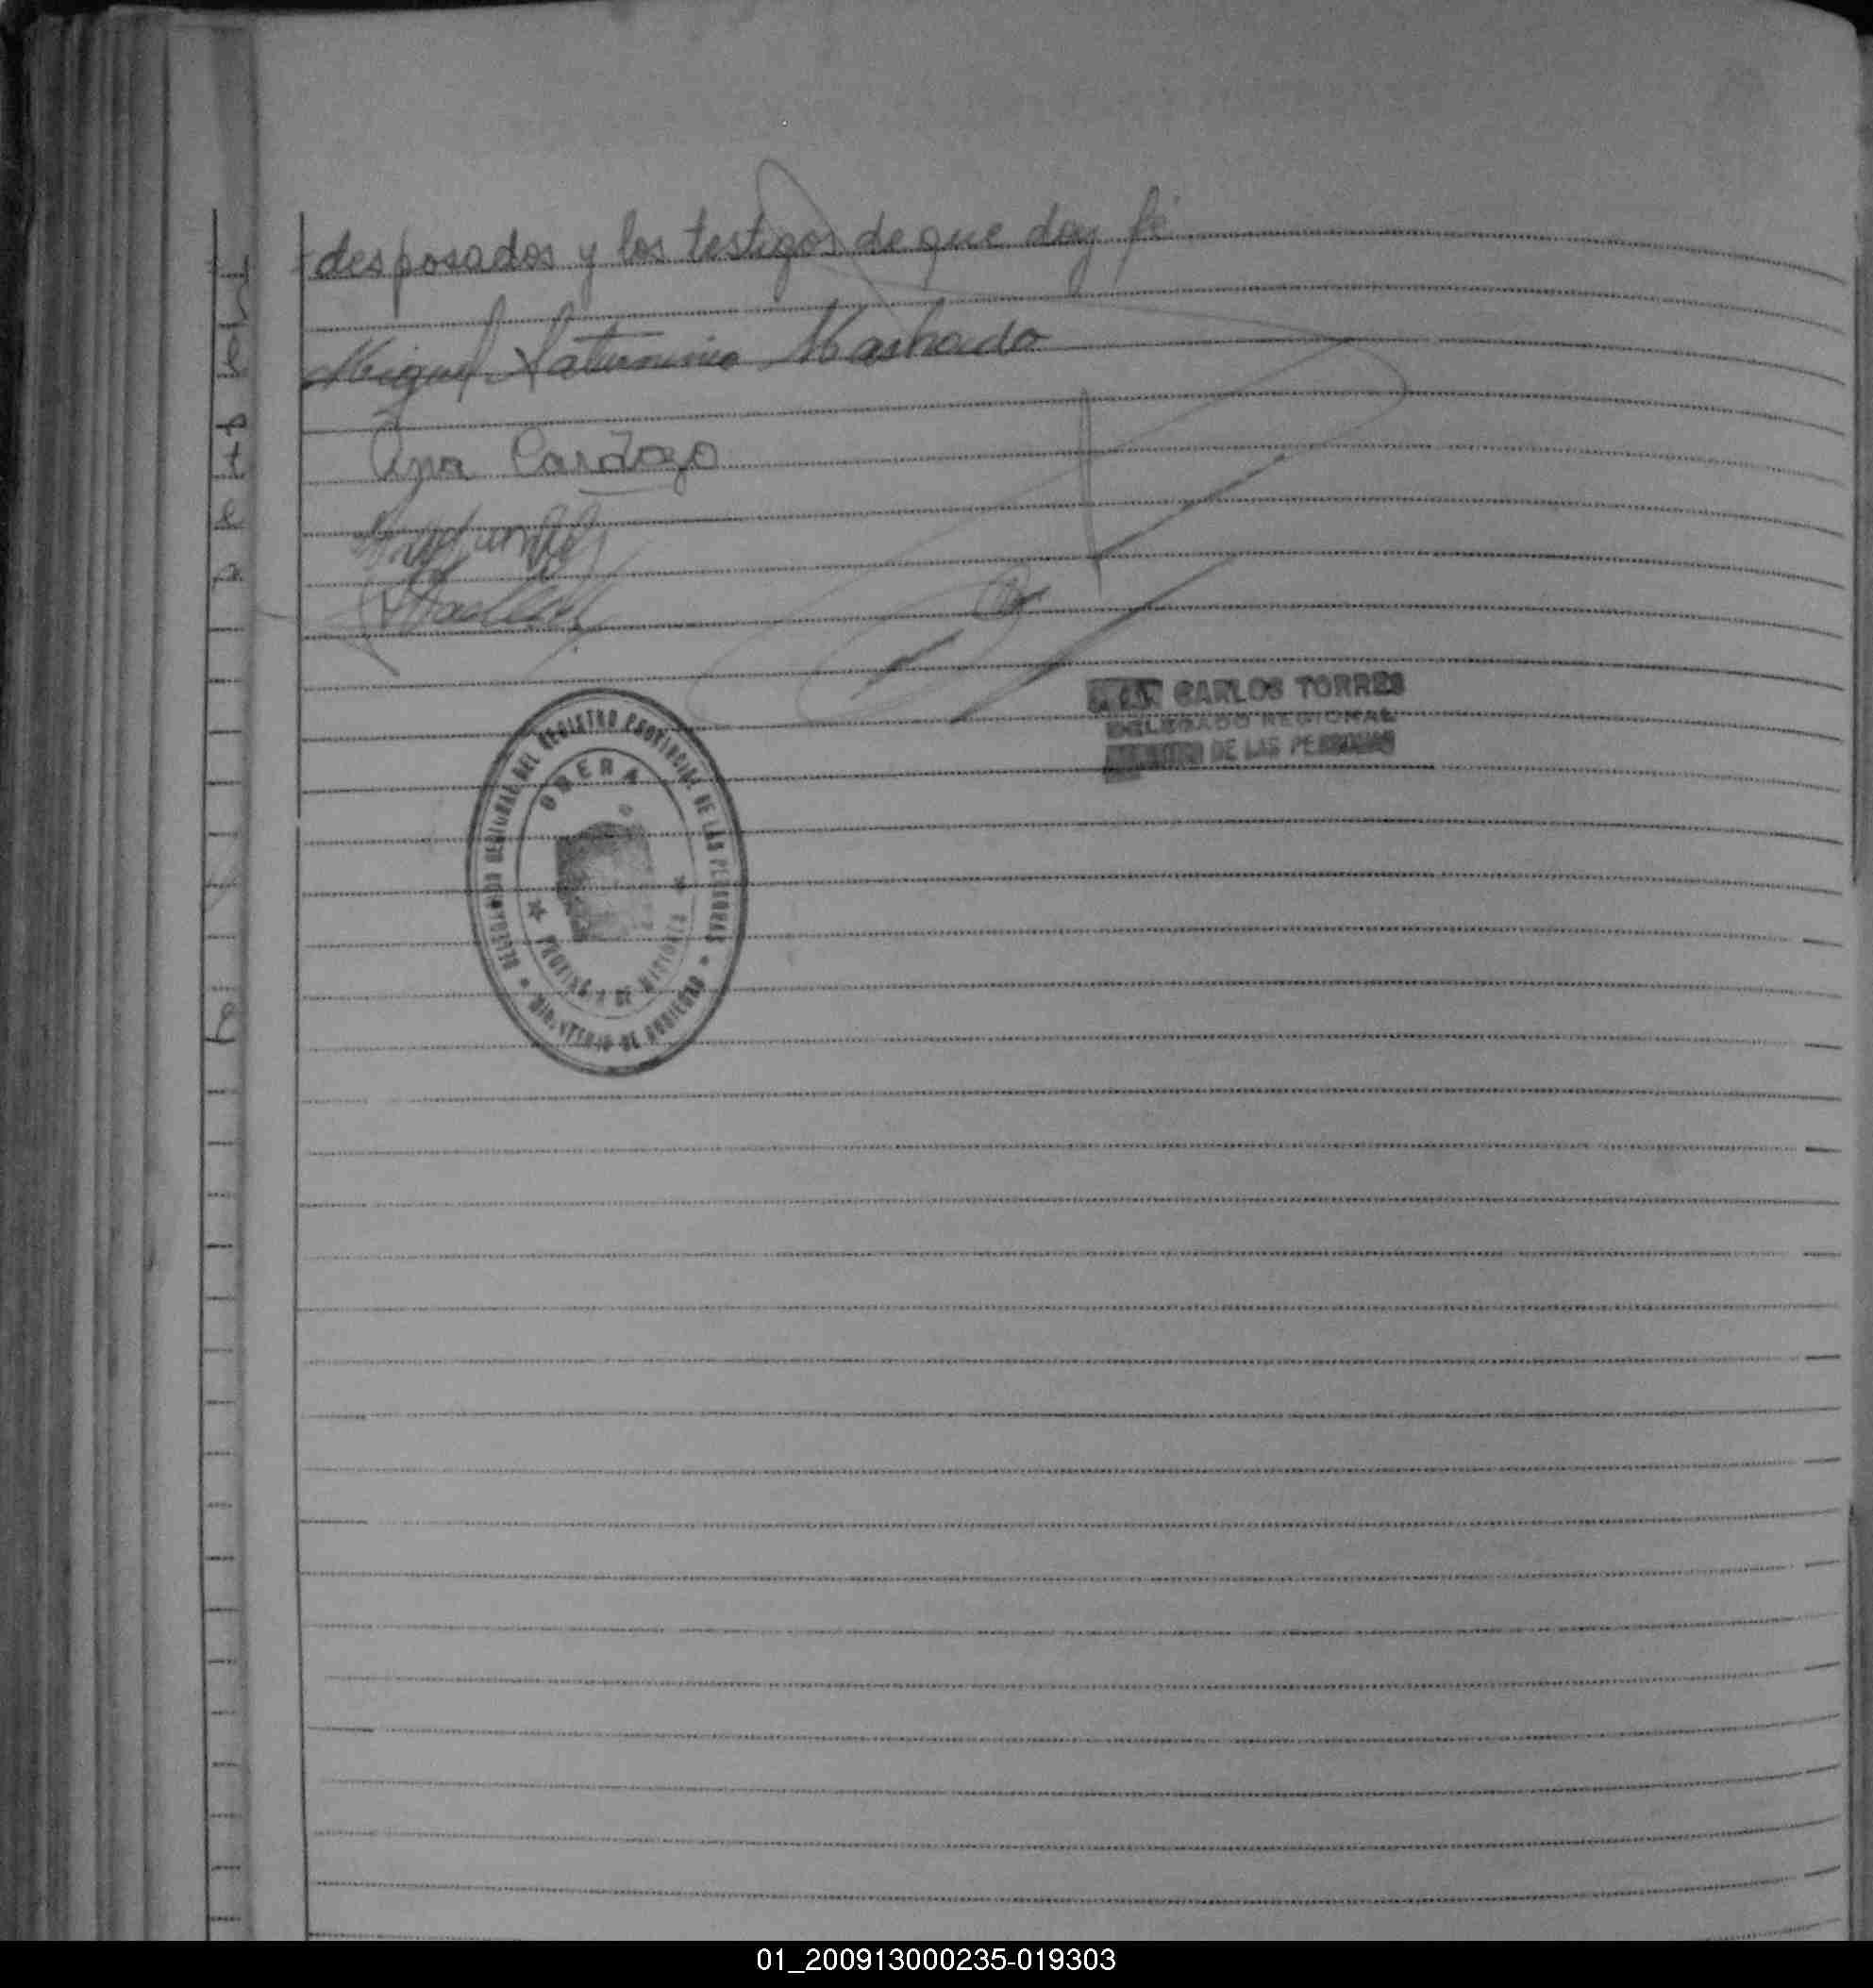 desposados y los testigos de que doy fé
Miguel Saturnino Machado
Ana Cardozo
DELEGACION REGIONAL DEL REGISTRO PROVINCIAL DE LAS PERSONAS
OBERA
PROVINCIA DE MISIONES
MINISTERIO DE GOBIERNO
CARLOS TORRES
DELEGADO REGIONAL
DE LAS PERSONAS
01_200913000235-019303